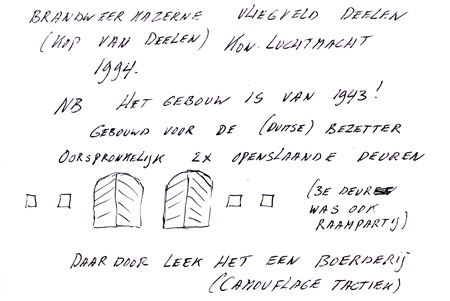 BRANDWEER KAZERNE VLIEGVELD DEELEN
(KOP VAN DEELEN) KON. LUCHTMACHT
1994.
NB HET GEBOUW IS VAN 1943!
GEBOUWD VOOR DE (DUITSE) BEZETTER
OORSPRONKELIJK 2X OPENSLAANDE DEUREN
(3E DEUREN
WAS OOK
RAAMPARTIJ)
DAARDOOR LEEK HET EEN BOERDERIJ
(CAMOUFLAGE TACTIEK)